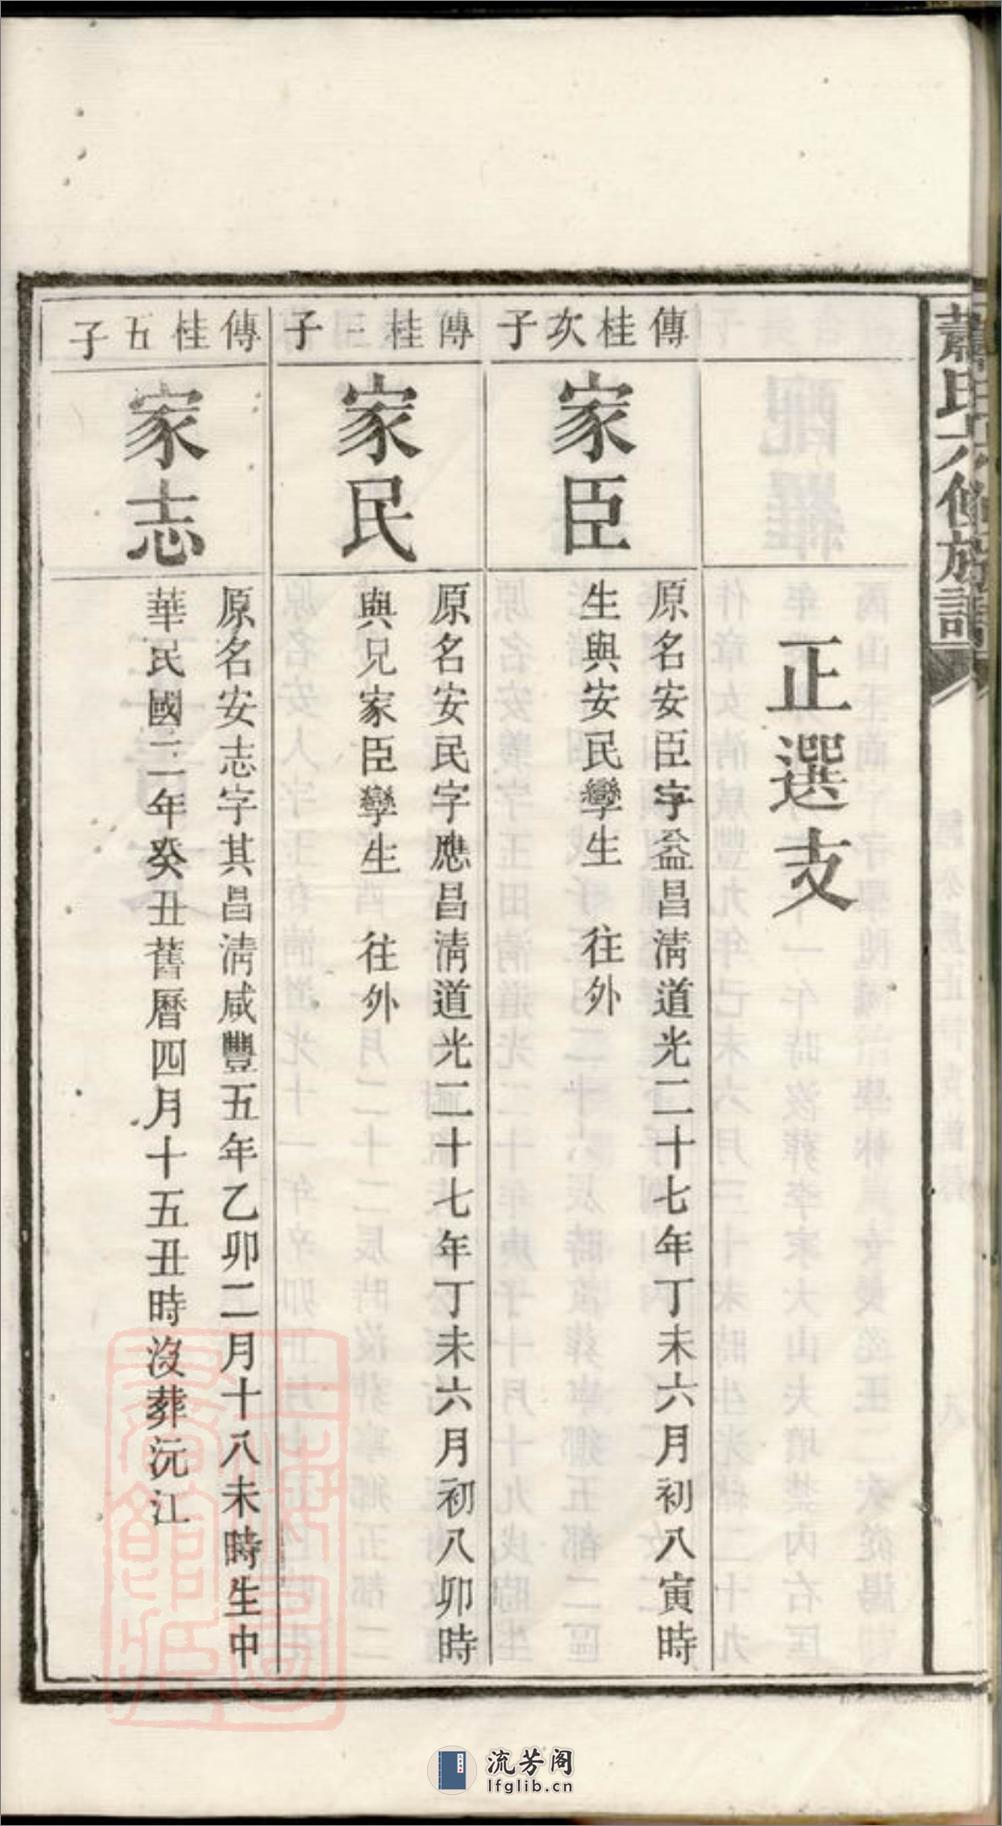 蕭氏六修族譜
正選支
傳桂次子
家臣
原名安臣字益昌淸道光二十七年丁未六月初八寅時
生與安民孿生　往外
傳桂三子
家民
原名安民字應昌淸道光二十七年丁未六月初八卯時
與兄家臣孿生　往外
傳桂五子
家志
原名安志字其昌淸咸豐五年乙卯二月十八未時生中
華民國二年癸丑舊曆四月十五丑時沒葬沅江
流芳阁
lfglib.cn